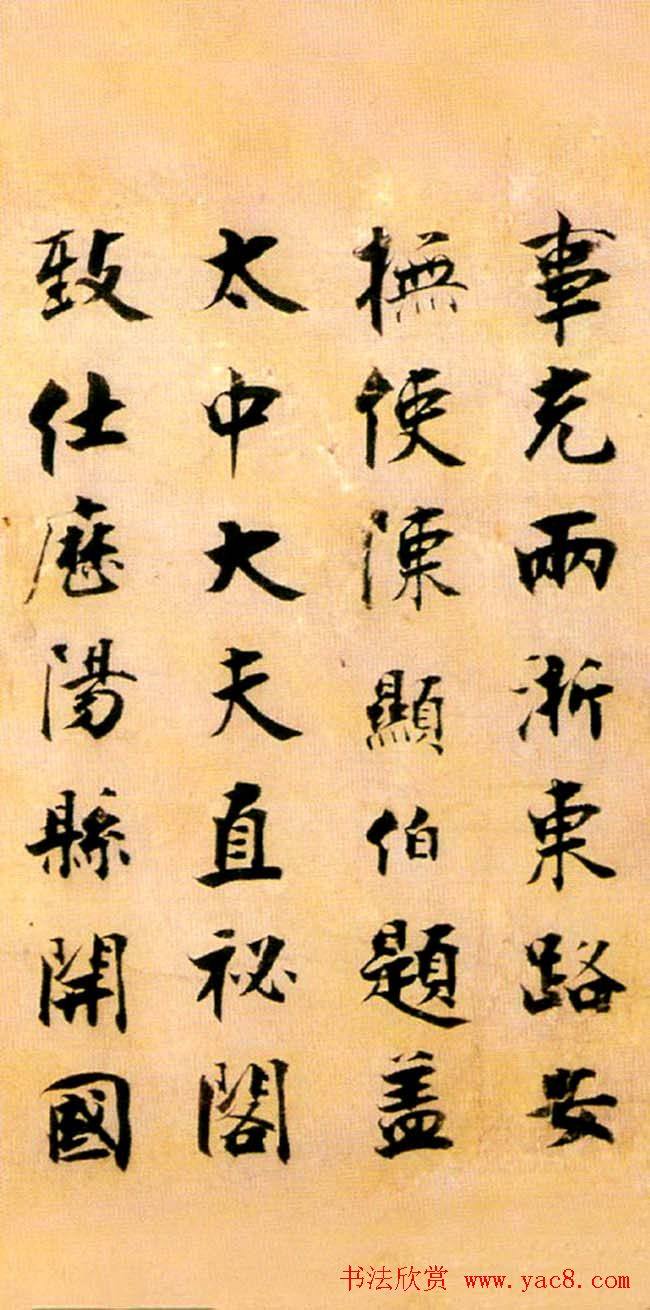 事充兩浙東路安
撫使陳顯伯題盖
太中大夫直祕閣
致仕歷陽縣開國
书法欣赏 www.yac8.com